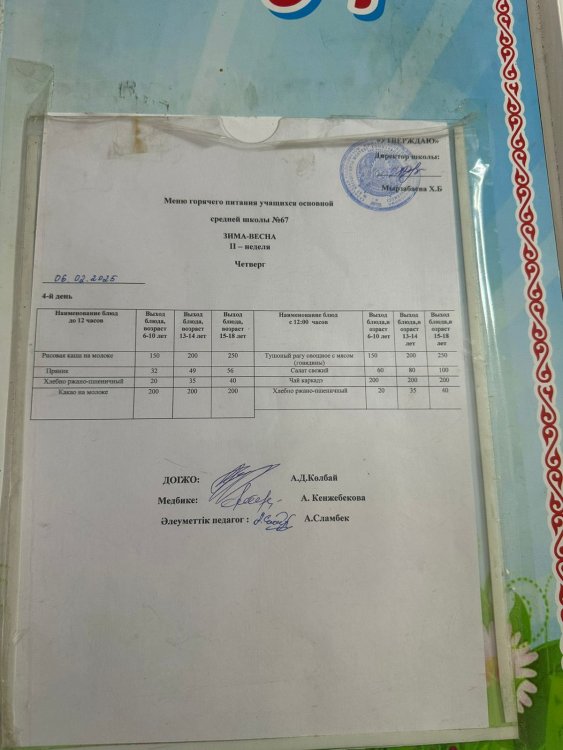 «УТВЕРЖДАЮ»
Директор школы:
Мырзабаева Х.Б
Меню горячего питания учащихся основной
средней школы №67
ЗИМА-ВЕСНА
II – неделя
Четверг
06 02. 2025
4-й день
Наименование блюд до 12 часов | Выход блюда, возраст 6-10 лет | Выход блюда, возраст 13-14 лет | Выход блюда, возраст 15-18 лет | Наименование блюд с 12:00 часов | Выход блюда,возраст 6-10 лет | Выход блюда,возраст 13-14 лет | Выход блюда,возраст 15-18 лет
Рисовая каша на молоке 150 200 250 Тушоный рагу овощное с мясом (говядины) 150 200 250
Пряник 32 49 56 Салат свежий 60 80 100
Хлебно ржано-пшеничный 20 35 40 Чай каркадэ 200 200 200
Какао на молоке 200 200 200 Хлебно ржано-пшеничный 20 35 40
ДОІЖО: А.Д.Колбай
Медбике: А. Кенжебекова
Әлеуметтік педагог : А.Сламбек